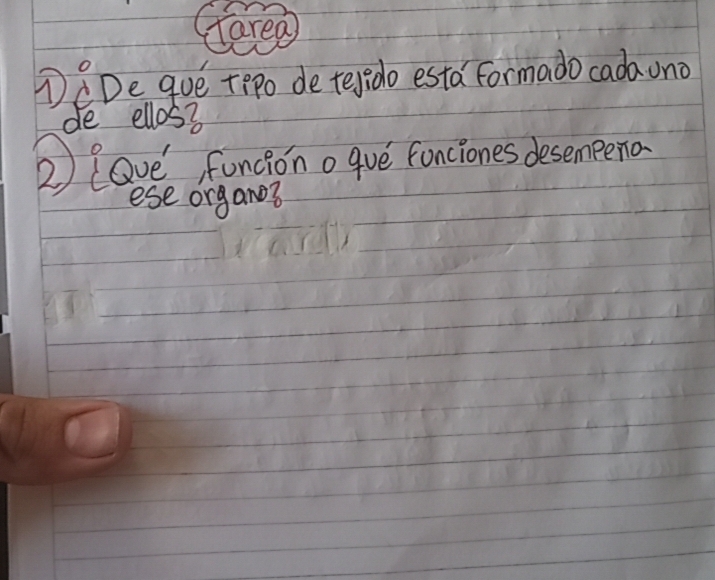 Tarea
1) ¿De qué tipo de tejido está formado cada uno
de ellos?
2) ¿Qué función o qué funciones desempeña
ese organo?